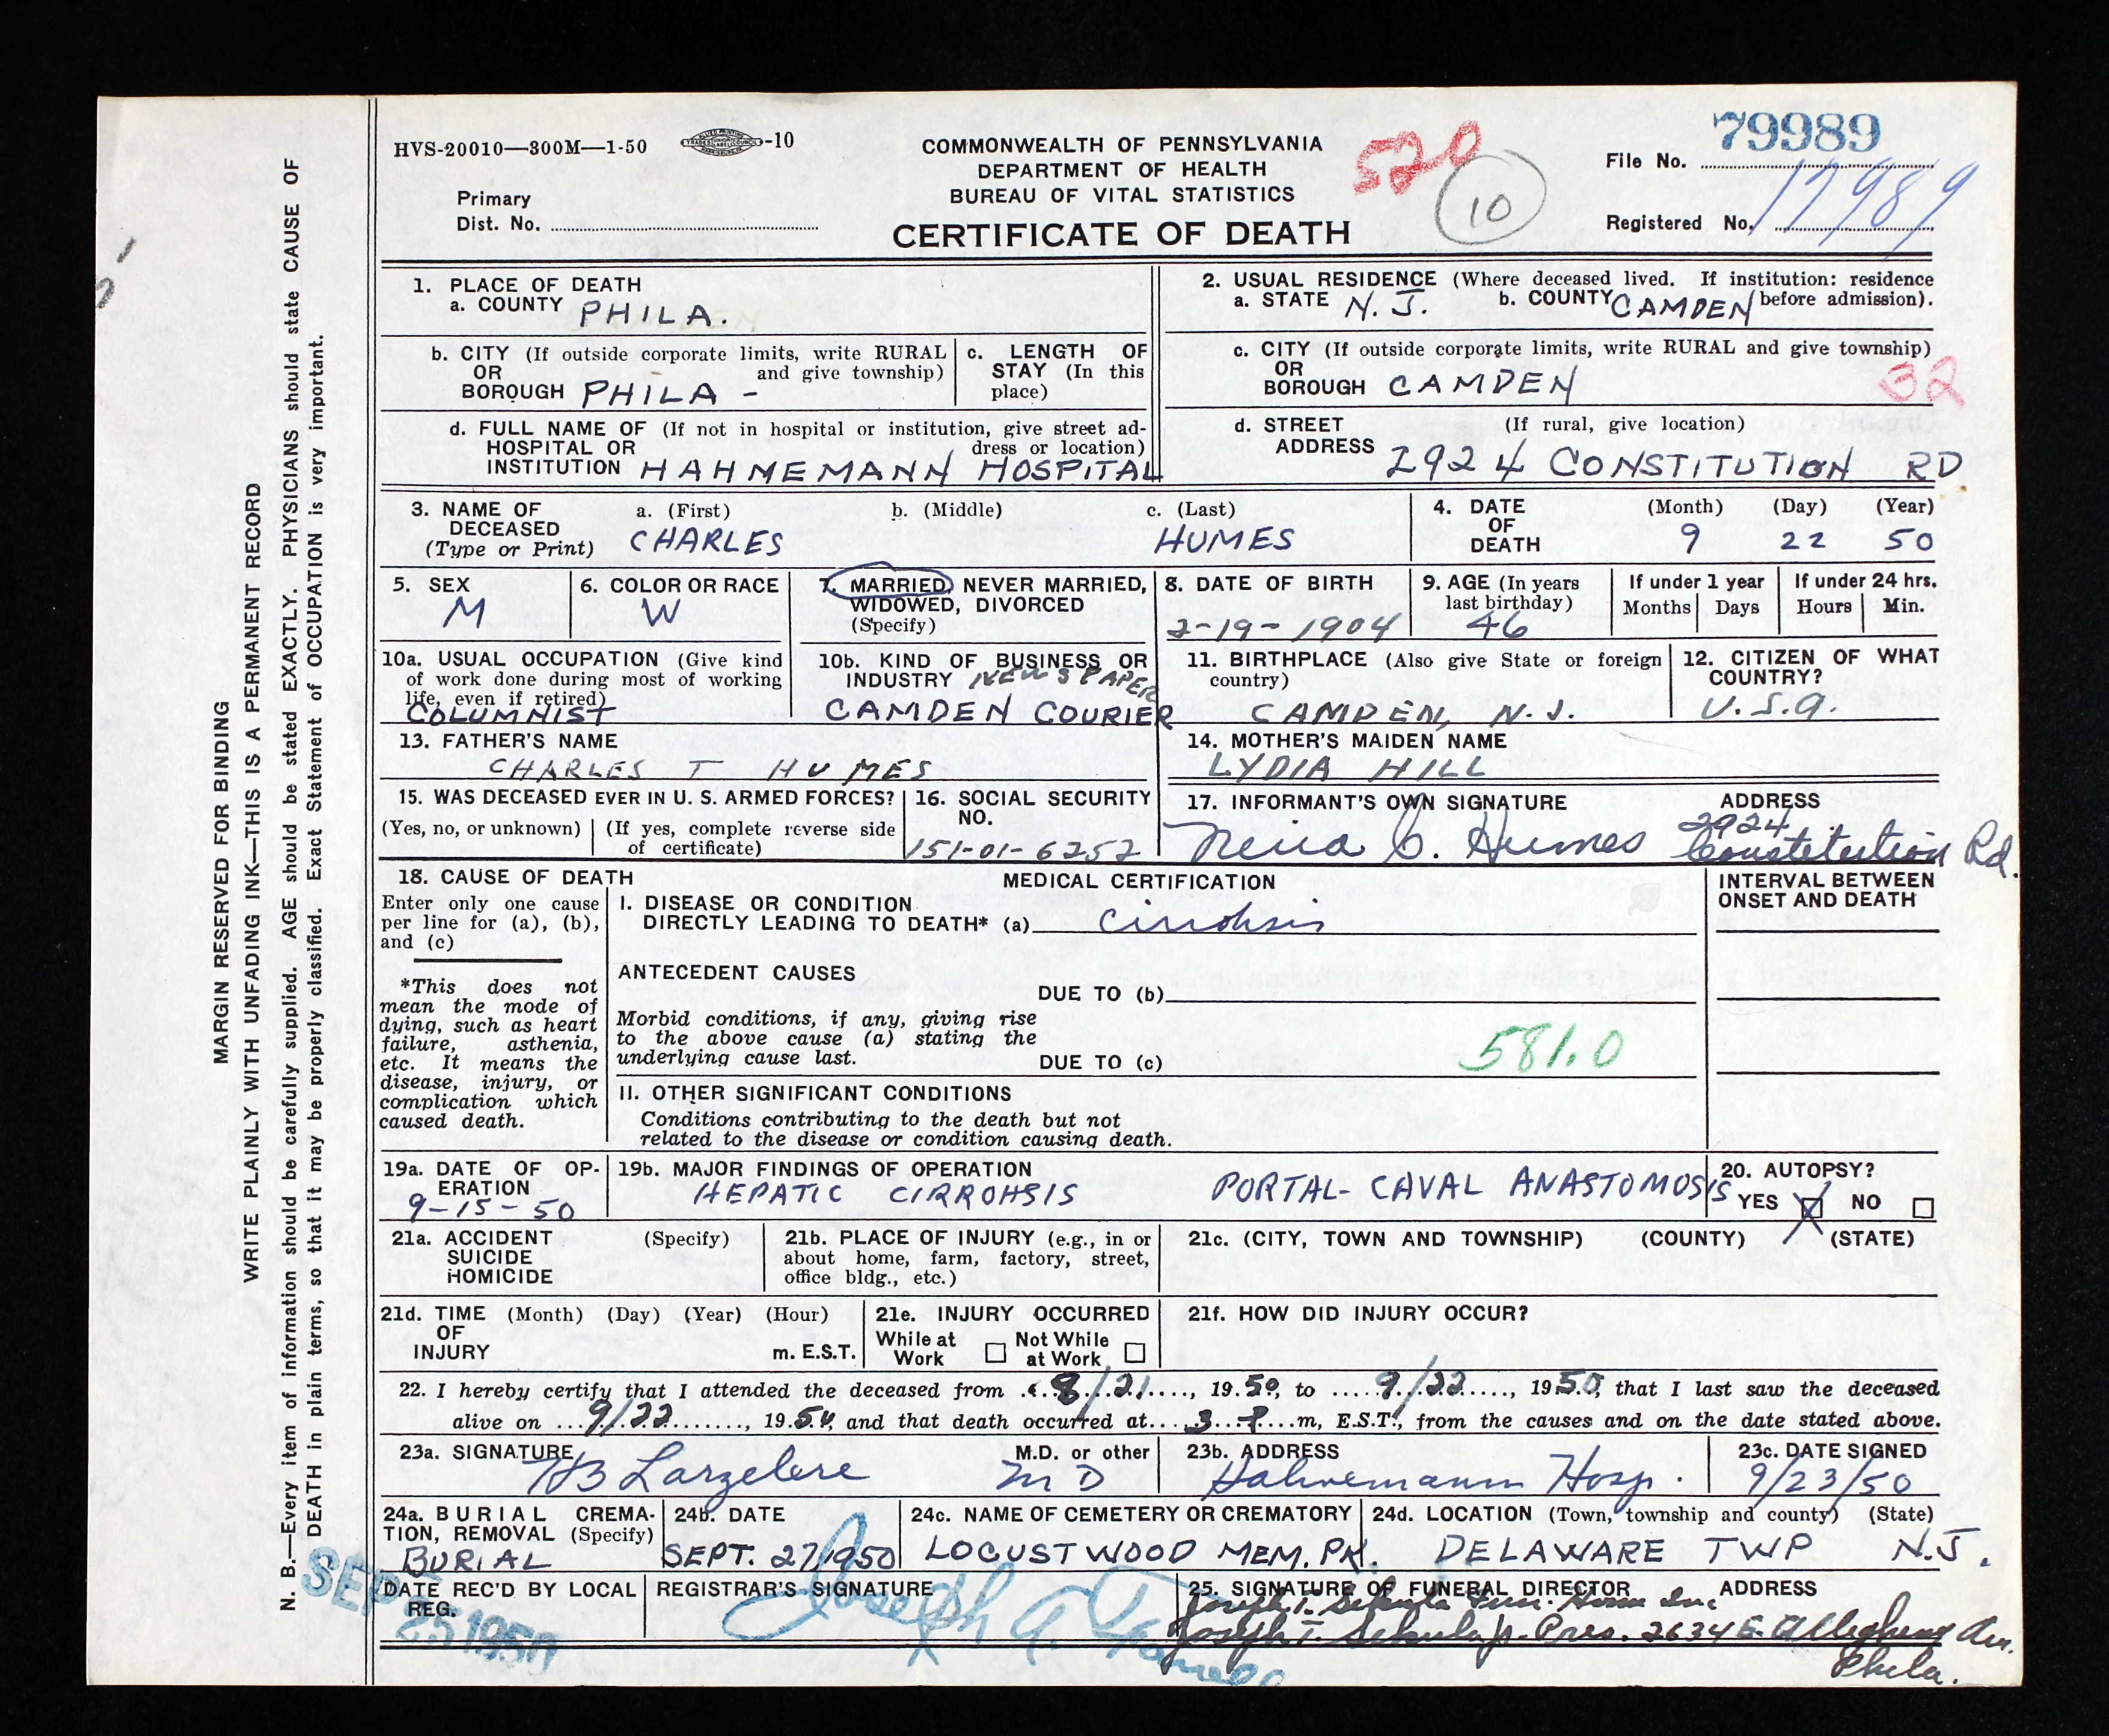 HVS-20010—300M—1-50 -10
COMMONWEALTH OF PENNSYLVANIA
DEPARTMENT OF HEALTH
BUREAU OF VITAL STATISTICS
CERTIFICATE OF DEATH
520
10
79989
File No.
17989
Registered No.
Primary
Dist. No.
MARGIN RESERVED FOR BINDING
WRITE PLAINLY WITH UNFADING INK—THIS IS A PERMANENT RECORD
N. B.—Every item of information should be carefully supplied. AGE should be stated EXACTLY. PHYSICIANS should state CAUSE OF
DEATH in plain terms, so that it may be properly classified. Exact Statement of OCCUPATION is very important.
1. PLACE OF DEATH
a. COUNTY PHILA.
b. CITY (If outside corporate limits, write RURAL
OR and give township)
BOROUGH PHILA -
c. LENGTH OF
STAY (In this
place)
d. FULL NAME OF (If not in hospital or institution, give street ad-
HOSPITAL OR dress or location)
INSTITUTION HAHNEMANN HOSPITAL
2. USUAL RESIDENCE (Where deceased lived. If institution: residence
a. STATE N. J. b. COUNTY CAMDEN before admission).
c. CITY (If outside corporate limits, write RURAL and give township)
OR
BOROUGH CAMDEN 32
d. STREET (If rural, give location)
ADDRESS 2924 CONSTITUTION RD
3. NAME OF a. (First) b. (Middle) c. (Last)
DECEASED
(Type or Print) CHARLES HUMES
4. DATE (Month) (Day) (Year)
OF
DEATH 9 22 50
5. SEX
M
6. COLOR OR RACE
W
7. MARRIED, NEVER MARRIED,
WIDOWED, DIVORCED
(Specify)
8. DATE OF BIRTH
2-19-1904
9. AGE (In years
last birthday)
46
If under 1 year
Months Days
If under 24 hrs.
Hours Min.
10a. USUAL OCCUPATION (Give kind
of work done during most of working
life, even if retired)
COLUMNIST
10b. KIND OF BUSINESS OR
INDUSTRY NEWSPAPER
CAMDEN COURIER
11. BIRTHPLACE (Also give State or foreign
country)
CAMDEN, N.J.
12. CITIZEN OF WHAT
COUNTRY?
U.S.A.
13. FATHER'S NAME
CHARLES T HUMES
14. MOTHER'S MAIDEN NAME
LYDIA HILL
15. WAS DECEASED EVER IN U. S. ARMED FORCES?
(Yes, no, or unknown) (If yes, complete reverse side
of certificate)
16. SOCIAL SECURITY
NO.
151-01-6252
17. INFORMANT'S OWN SIGNATURE ADDRESS
C. Humes 2924
Constitution Rd.
18. CAUSE OF DEATH MEDICAL CERTIFICATION
Enter only one cause
per line for (a), (b),
and (c)
*This does not
mean the mode of
dying, such as heart
failure, asthenia,
etc. It means the
disease, injury, or
complication which
caused death.
I. DISEASE OR CONDITION
DIRECTLY LEADING TO DEATH* (a) cirrohsis
ANTECEDENT CAUSES
DUE TO (b)
Morbid conditions, if any, giving rise
to the above cause (a) stating the
underlying cause last.
DUE TO (c)
581.0
II. OTHER SIGNIFICANT CONDITIONS
Conditions contributing to the death but not
related to the disease or condition causing death.
INTERVAL BETWEEN
ONSET AND DEATH
19a. DATE OF OP-
ERATION
9-15-50
19b. MAJOR FINDINGS OF OPERATION
HEPATIC CIRROHSIS PORTAL-CAVAL ANASTOMOSIS
20. AUTOPSY?
YES X NO
21a. ACCIDENT (Specify)
SUICIDE
HOMICIDE
21b. PLACE OF INJURY (e.g., in or
about home, farm, factory, street,
office bldg., etc.)
21c. (CITY, TOWN AND TOWNSHIP) (COUNTY) (STATE)
21d. TIME (Month) (Day) (Year) (Hour)
OF
INJURY m. E.S.T.
21e. INJURY OCCURRED
While at Not While
Work at Work
21f. HOW DID INJURY OCCUR?
22. I hereby certify that I attended the deceased from 8/21, 1950, to 9/22, 1950, that I last saw the deceased
alive on 9/22, 1950, and that death occurred at 3 P m, E.S.T., from the causes and on the date stated above.
23a. SIGNATURE M.D. or other
HB Larzelere MD
23b. ADDRESS
Hahnemann Hosp.
23c. DATE SIGNED
9/23/50
24a. BURIAL CREMA-
TION, REMOVAL (Specify)
BURIAL
24b. DATE
SEPT. 27, 1950
24c. NAME OF CEMETERY OR CREMATORY
LOCUSTWOOD MEM. PK.
24d. LOCATION (Town, township and county) (State)
DELAWARE TWP N.J.
DATE REC'D BY LOCAL
REG.
SEP 25 1950
REGISTRAR'S SIGNATURE
Joseph A.
25. SIGNATURE OF FUNERAL DIRECTOR ADDRESS
Joseph T. Sekula Fun. Home Inc
Joseph T. Sekula Jr. Pres. 2634 E. Allegheny Av.
Phila.